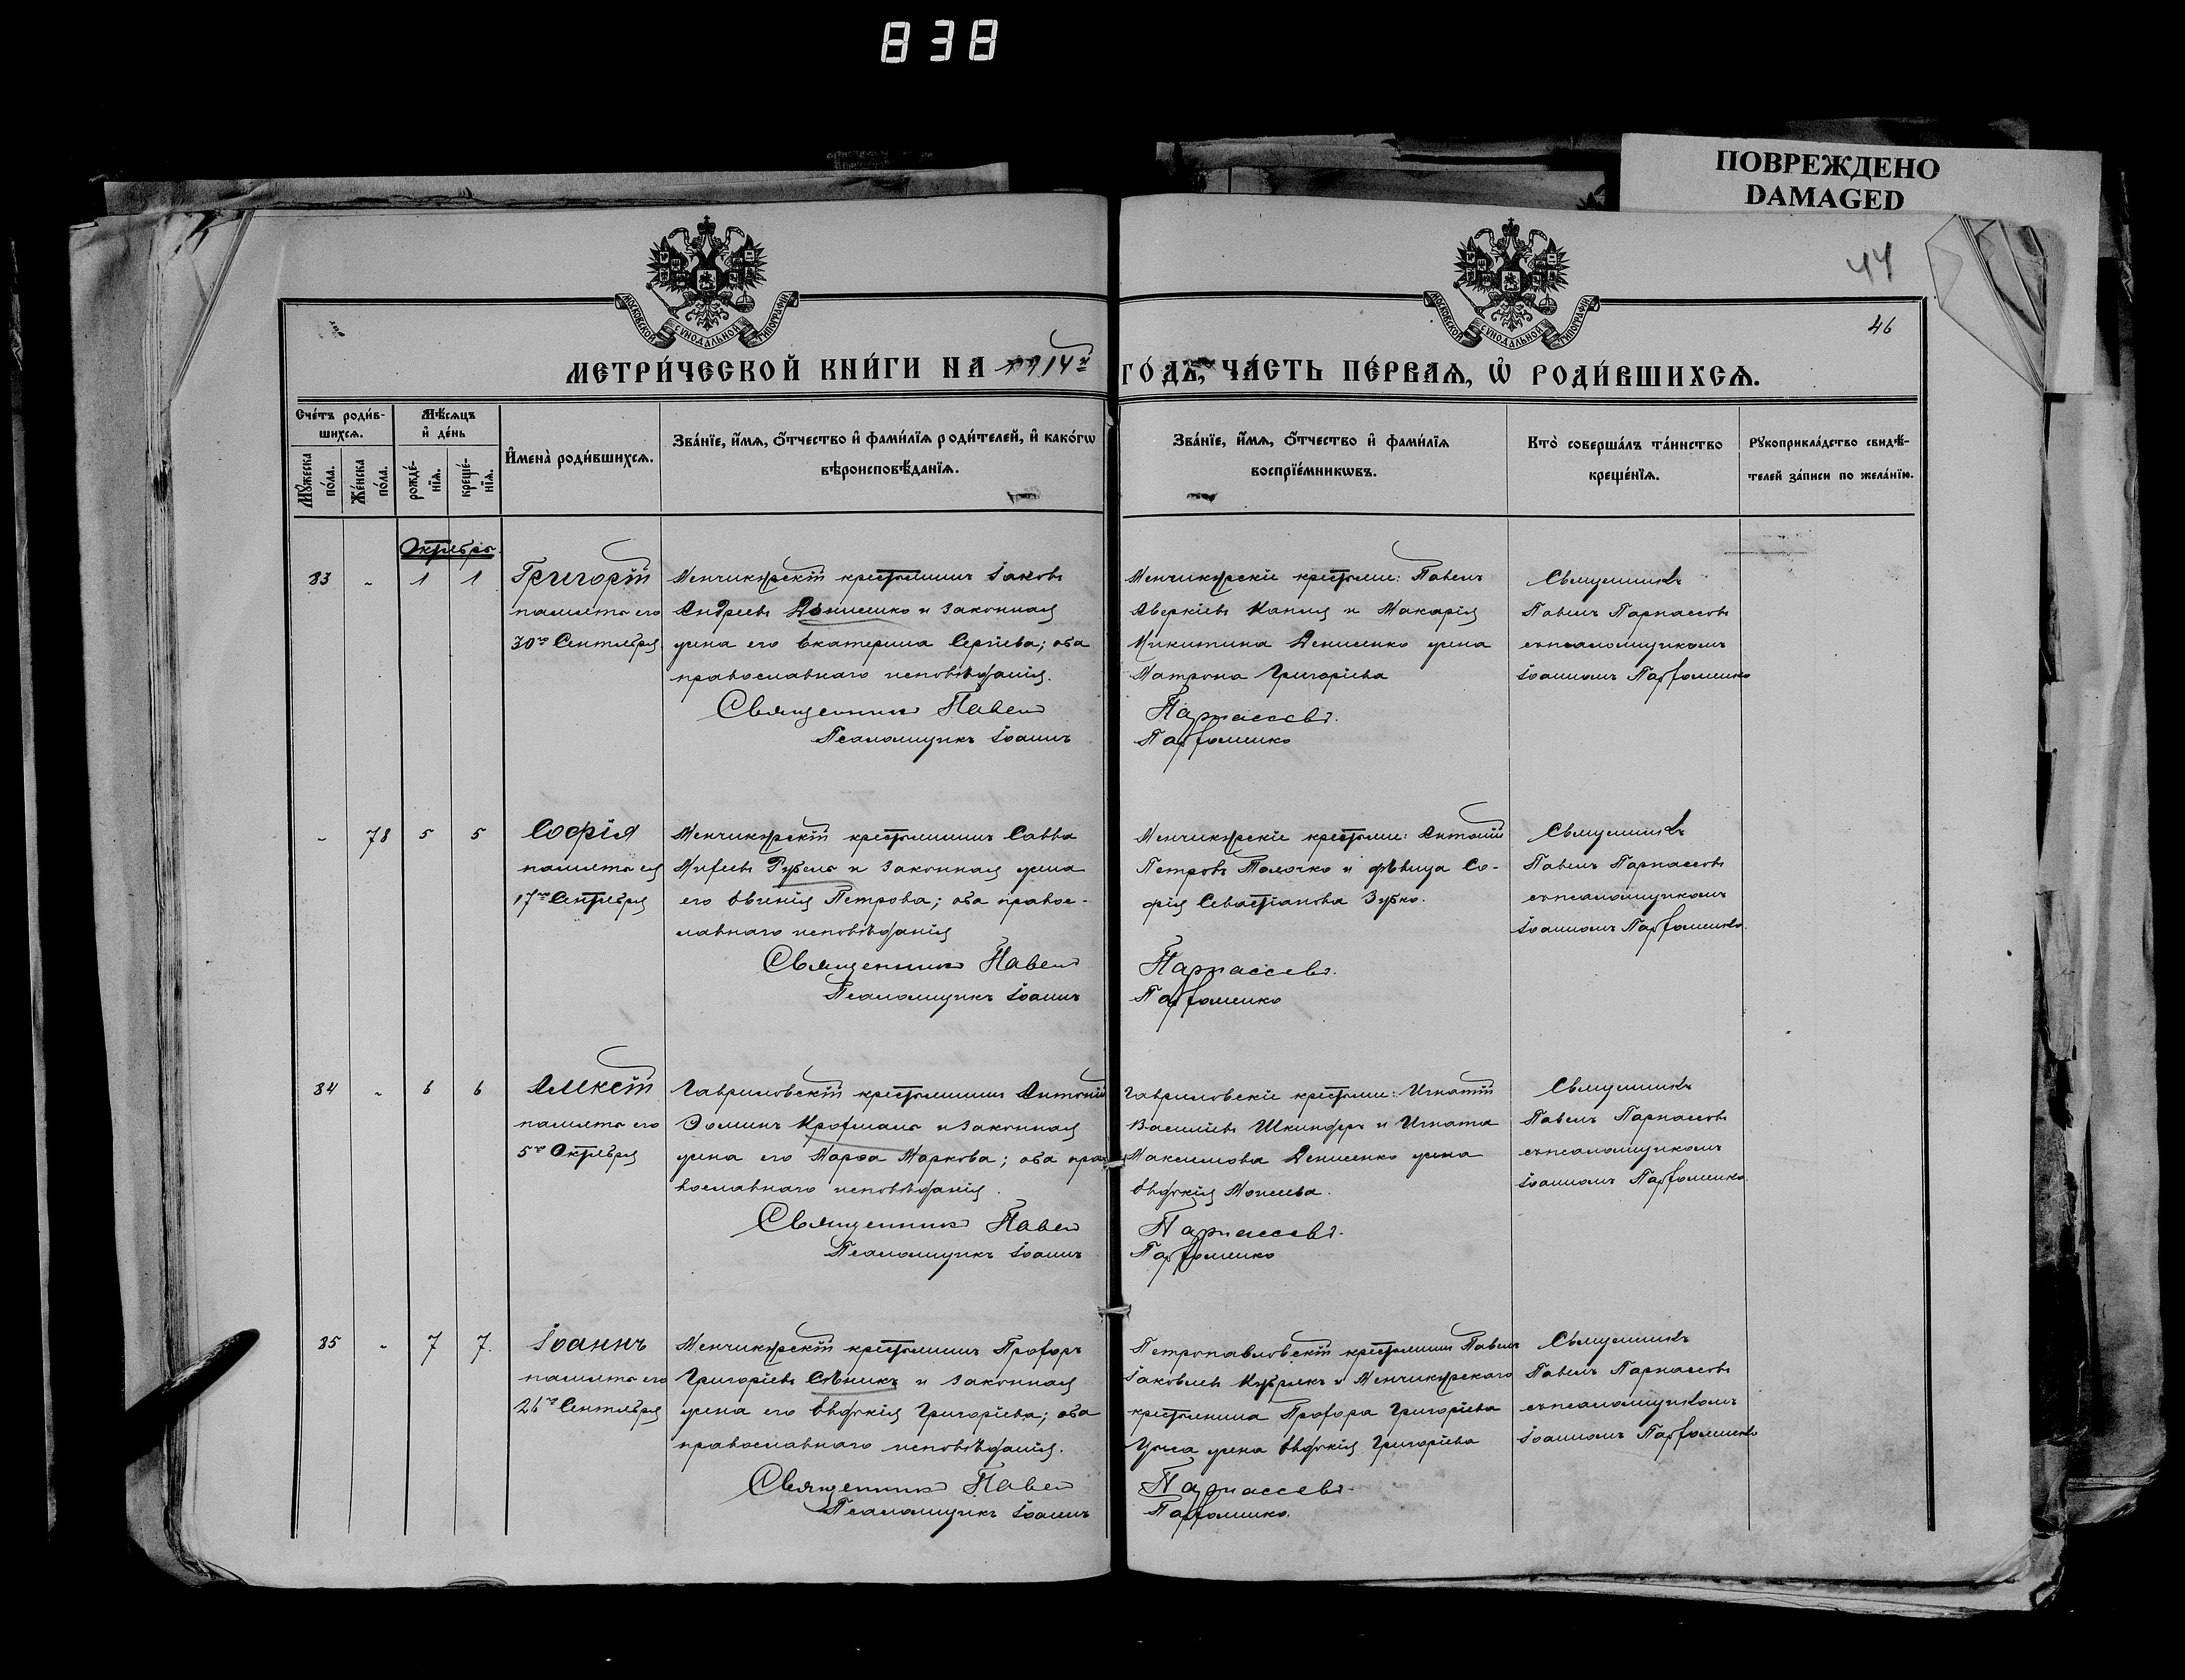 838
ПОВРЕЖДЕНО
DAMAGED
44
46
МОСКОВСКОЙ СѴНОДАЛЬНОЙ ТИПОГРАФІИ
МОСКОВСКОЙ СѴНОДАЛЬНОЙ ТИПОГРАФІИ
МЕТРИ́ЧЕСКОЙ КНИ́ГИ НА 1914й ГО́ДЪ, ЧА́СТЬ ПЕ́РВАѦ, Ѡ РОДИ́ВШИХСѦ.
Сче́тъ роди́в-
шихсѧ.
Мѣ́сѧцъ
и де́нь
Мꙋ́жеска
по́ла.
Же́нска
по́ла.
рожде́-
нїѧ.
креще́-
нїѧ.
Имена̀ роди́вшихсѧ.
Зва́нїе, и́мѧ, ѻ́тчество и фами́лїѧ роди́телей, и како́гѡ
вѣроисповѣ́данїѧ.
Зва́нїе, и́мѧ, ѻ́тчество и фами́лїѧ
воспрїе́мникѡвъ.
Кто̀ соверша́лъ та́инство
креще́нїѧ.
Рꙋкоприкла́дство свидѣ́-
телей за́писи по жела́нїю.
Октябрь.
83 - 1 1
Григорій
память его
30го Сентября
Менчикурскій крестьянинъ Іаковъ
Андреевъ Денисенко и законная
жена его Екатерина Сергіева; оба
православнаго исповѣданія.
Священникъ Павелъ
Псаломщикъ Іоаннъ
Менчикурскіе крестьяне: Павелъ
Аверкіевъ Капля и Макарія
Никитина Денисенко жена
Матрона Григоріева
Парнассовъ.
Парфоменко
Священникъ
Павелъ Парнассовъ
съ псаломщикомъ
Іоанномъ Парфоменко
- 78 5 5
Софія
память ея
17го Сентября
Менчикурскій крестьянинъ Савва
и законная жена
его Евгенія Петрова; оба правос-
лавнаго исповѣданія
Священникъ Павелъ
Псаломщикъ Іоаннъ
Менчикурскіе крестьяне: Антоній
Петровъ Толочко и дѣвица Со-
фія Севастіанова Зубко.
Парнассовъ.
Парфоменко
Священникъ
Павелъ Парнассовъ
съ псаломщикомъ
Іоанномъ Парфоменко.
84 - 6 6
Алексій
память его
5го Октября
Гавриловскій крестьянинъ Антоній
Ѳоминъ и законная
жена его Марѳа Маркова; оба пра-
вославнаго исповѣданія.
Священникъ Павелъ
Псаломщикъ Іоаннъ
Гавриловскіе крестьяне: Игнатій
Василіевъ Шкиндеръ и Игната
Максимова Денисенко жена
Евдокія Моисеева.
Парнассовъ.
Парфоменко
Священникъ
Павелъ Парнассовъ
съ псаломщикомъ
Іоанномъ Парфоменко.
85 - 7 7.
Іоаннъ
память его
26го Сентября
Менчикурскій крестьянинъ Прохоръ
Григоріевъ и законная
жена его Евдокія Григоріева; оба
православнаго исповѣданія.
Священникъ Павелъ
Псаломщикъ Іоаннъ
Петропавловскій крестьянинъ Павелъ
Іаковлевъ и Менчикурскаго
крестьянина Прохора Григоріева
жена Евдокія Григоріева
Парнассовъ.
Парфоменко.
Священникъ
Павелъ Парнассовъ
съ псаломщикомъ
Іоанномъ Парфоменко